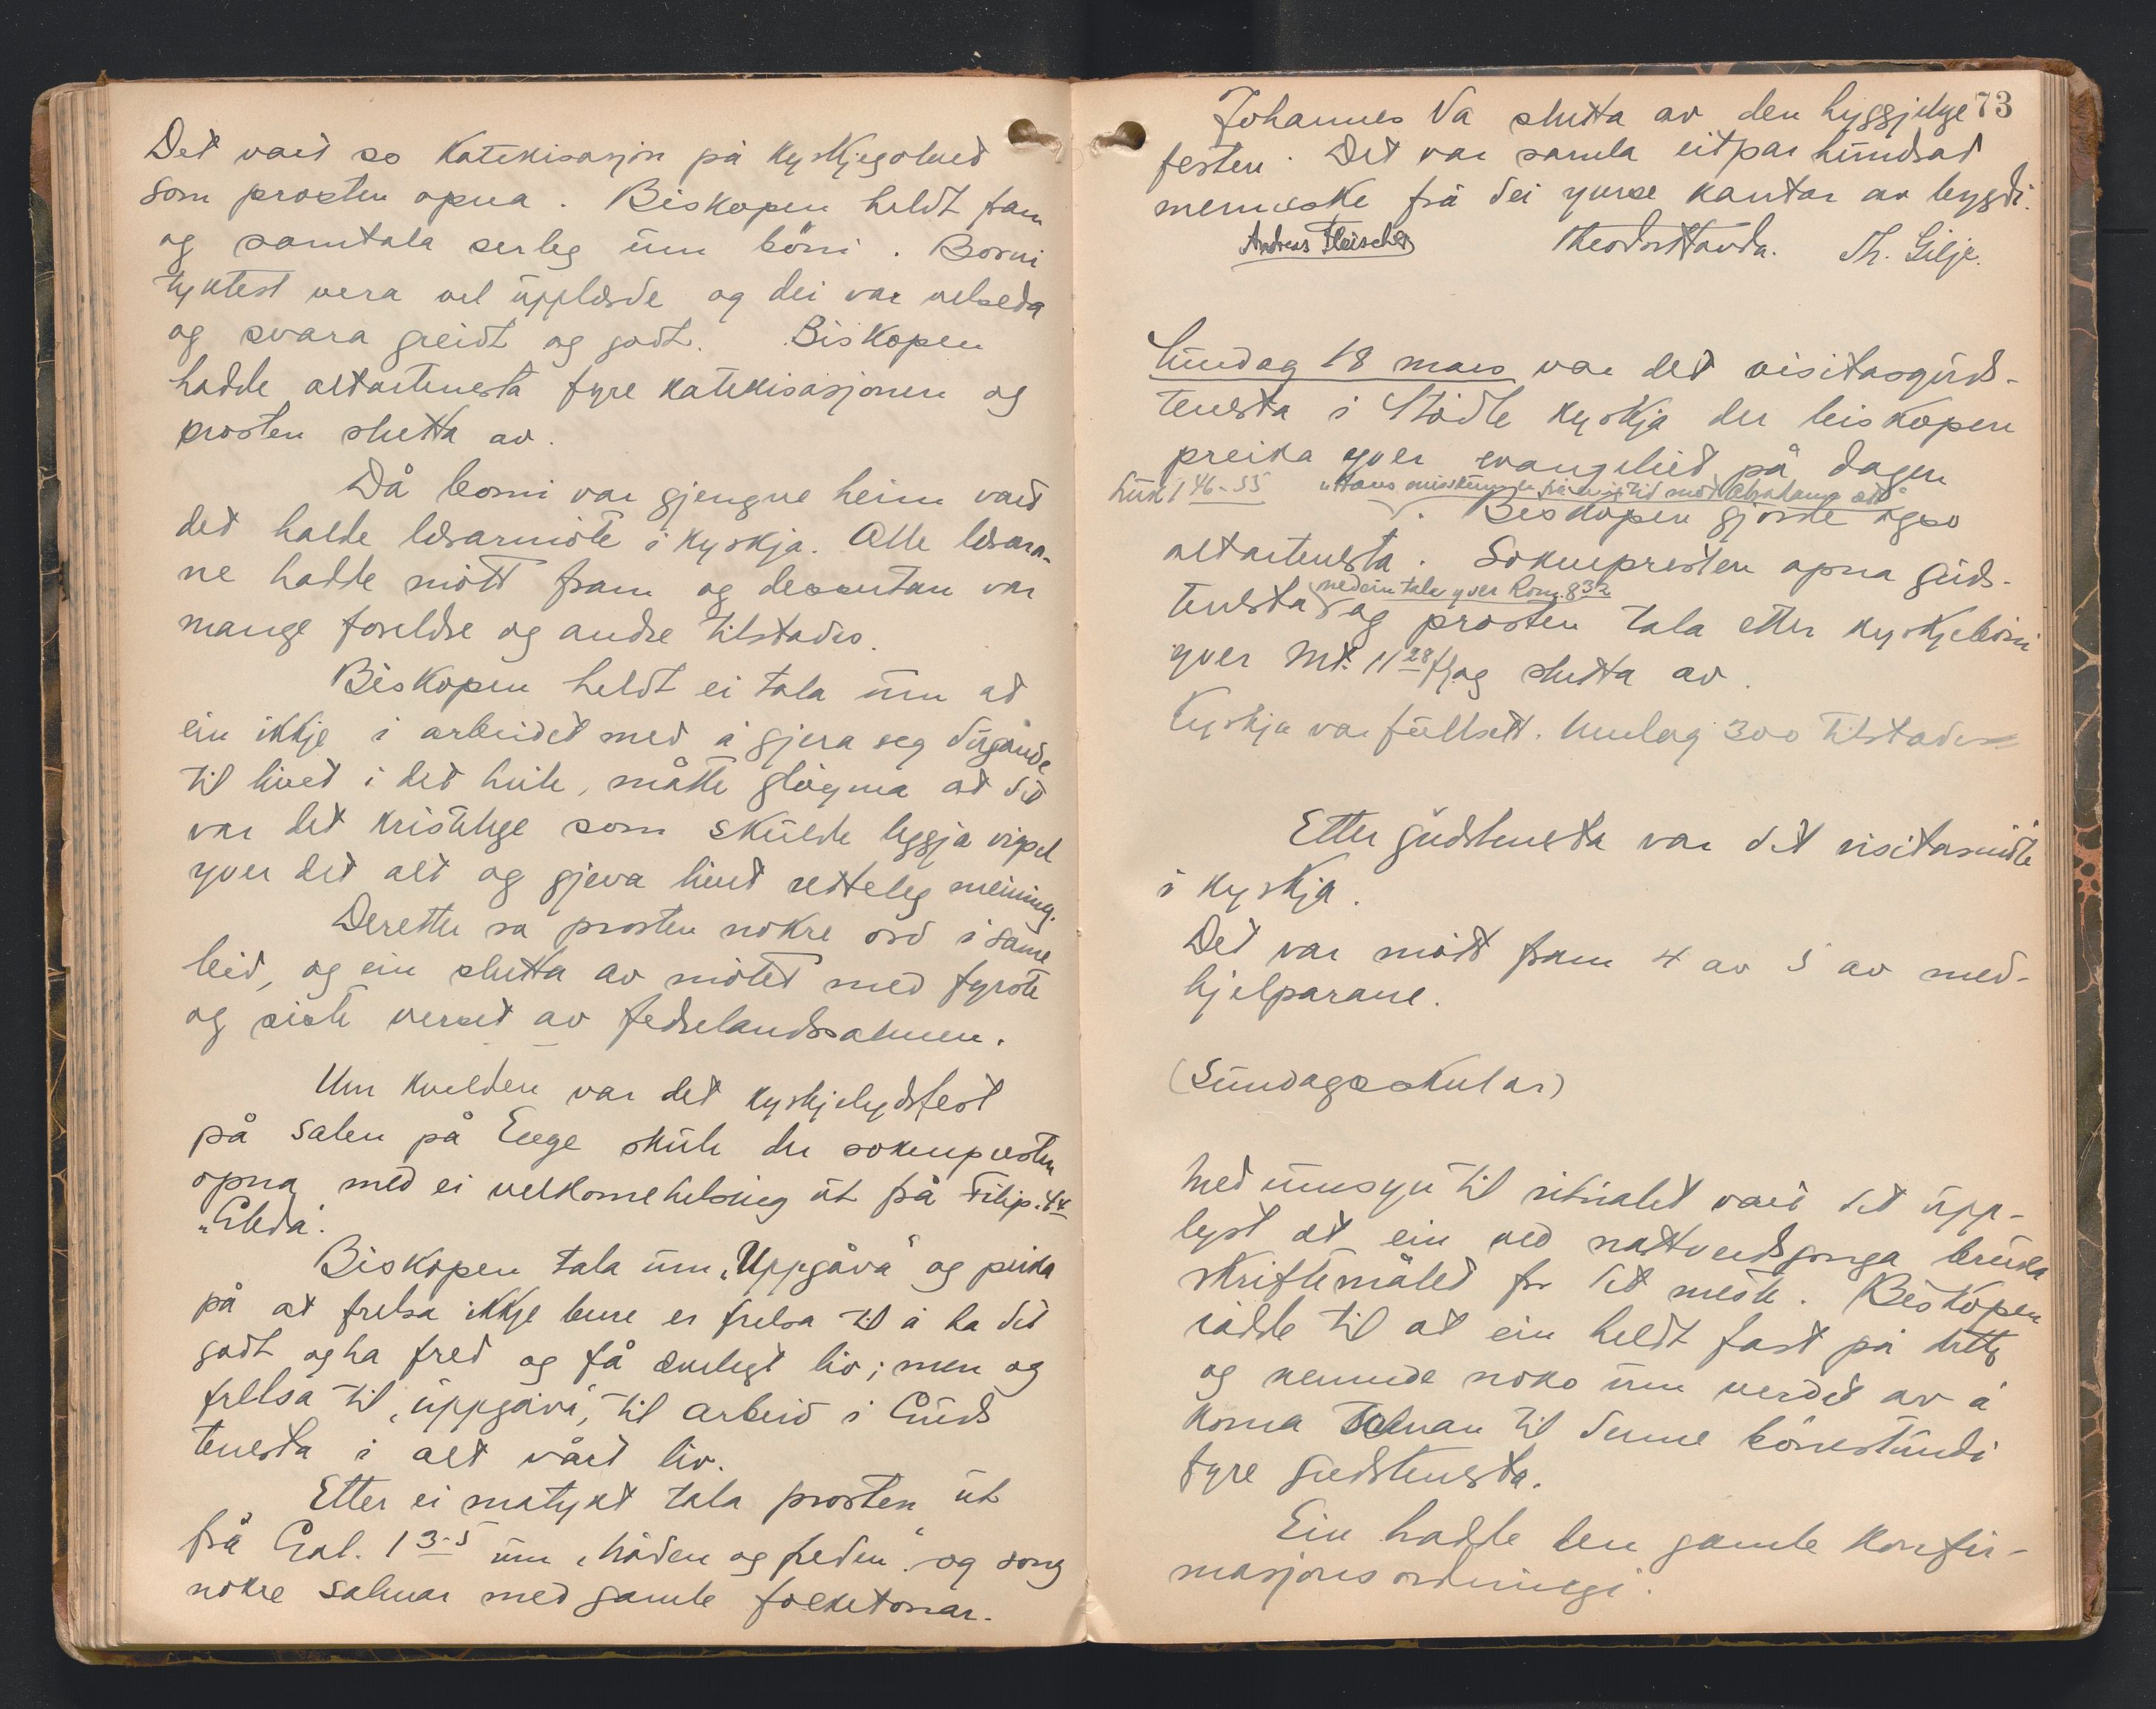 Det vart so katekisasjon på kyrkjegolvet
som prosten opna. Biskopen heldt fram
og samtala serleg um bøni. Borni
tyktest vera vel upplærde og dei var velseda
og svara greidt og godt. Biskopen
hadde altartenesta fyre katekisasjonen og
prosten slutta av.
Då borni var gjengne heim vart
det halde lærarmøte i kyrkja. Alle lærara-
ne hadde møtt fram og dessutan var
mange foreldre og andre tilstades.
Biskopen heldt ei tala um at
ein ikkje i arbeidet med å gjera seg dugande
til livet i det heile, måtte gløyma at det
var det kristelege som skulde leggja vigsel
yver det alt og gjeva livet retteleg meining.
Deretter sa prosten nokre ord i same
leid, og ein slutta av møtet med fyrste
og siste verset av fedrelandssalmen.
Um kvelden var det kyrkjelydsfest
på salen på Enge skule der soknepresten
opna med ei velkomehelsing ut frå Filip. 4 4
„Gleda".
Biskopen tala um „Uppgåva" og peika
på at frelsa ikkje bere er frelsa til å ha det
godt og ha fred og få ævelegt liv; men og
frelsa til „uppgåva", til arbeid i Guds
tenesta i alt vårt liv.
Etter ei matykt tala prosten ut
frå Gal. 1 3-5 um „nåden og freden" og song
nokre salmar med gamle folketonar.
73
Johannes Va slutta av den hyggjelege
festen. Det var samla eitpar hundrad
menneske frå dei ymse kantar av bygdi.
Andreas Fleischer Theodor Havda. Th. Gilje.
Sundag 18 mars var det visitasguds-
tenesta i Stødle kyrkja der biskopen
preika yver evangeliet på dagen
Luk 1 46-55 „Hans miskunn er frå tid mot Abrahams ætt"
. Biskopen gjorde ogso
altartenesta. Soknepresten opna guds-
med ein tale yver Rom. 8 32
tenesta og prosten tala etter kyrkjebøni
yver Mt. 11 28 flg og slutta av.
Kyrkja var fullsett. Umlag 300 tilstades
Etter gudstenesta var det visitasmøte
i kyrkja.
Det var møtt fram 4 av 5 av med-
hjelparane.
(Sundagsskular)
Med umsyn til ritualet vart det upp-
lyst at ein ved nattverdsgonga bruka
skriftemålet for det meste. Biskopen
rådde til at ein heldt fast på dette
og nemnde noko um verdet av å
koma saman til denne bønestundi
fyre gudstenesta.
Ein hadde den gamle konfir-
masjonsordningi.